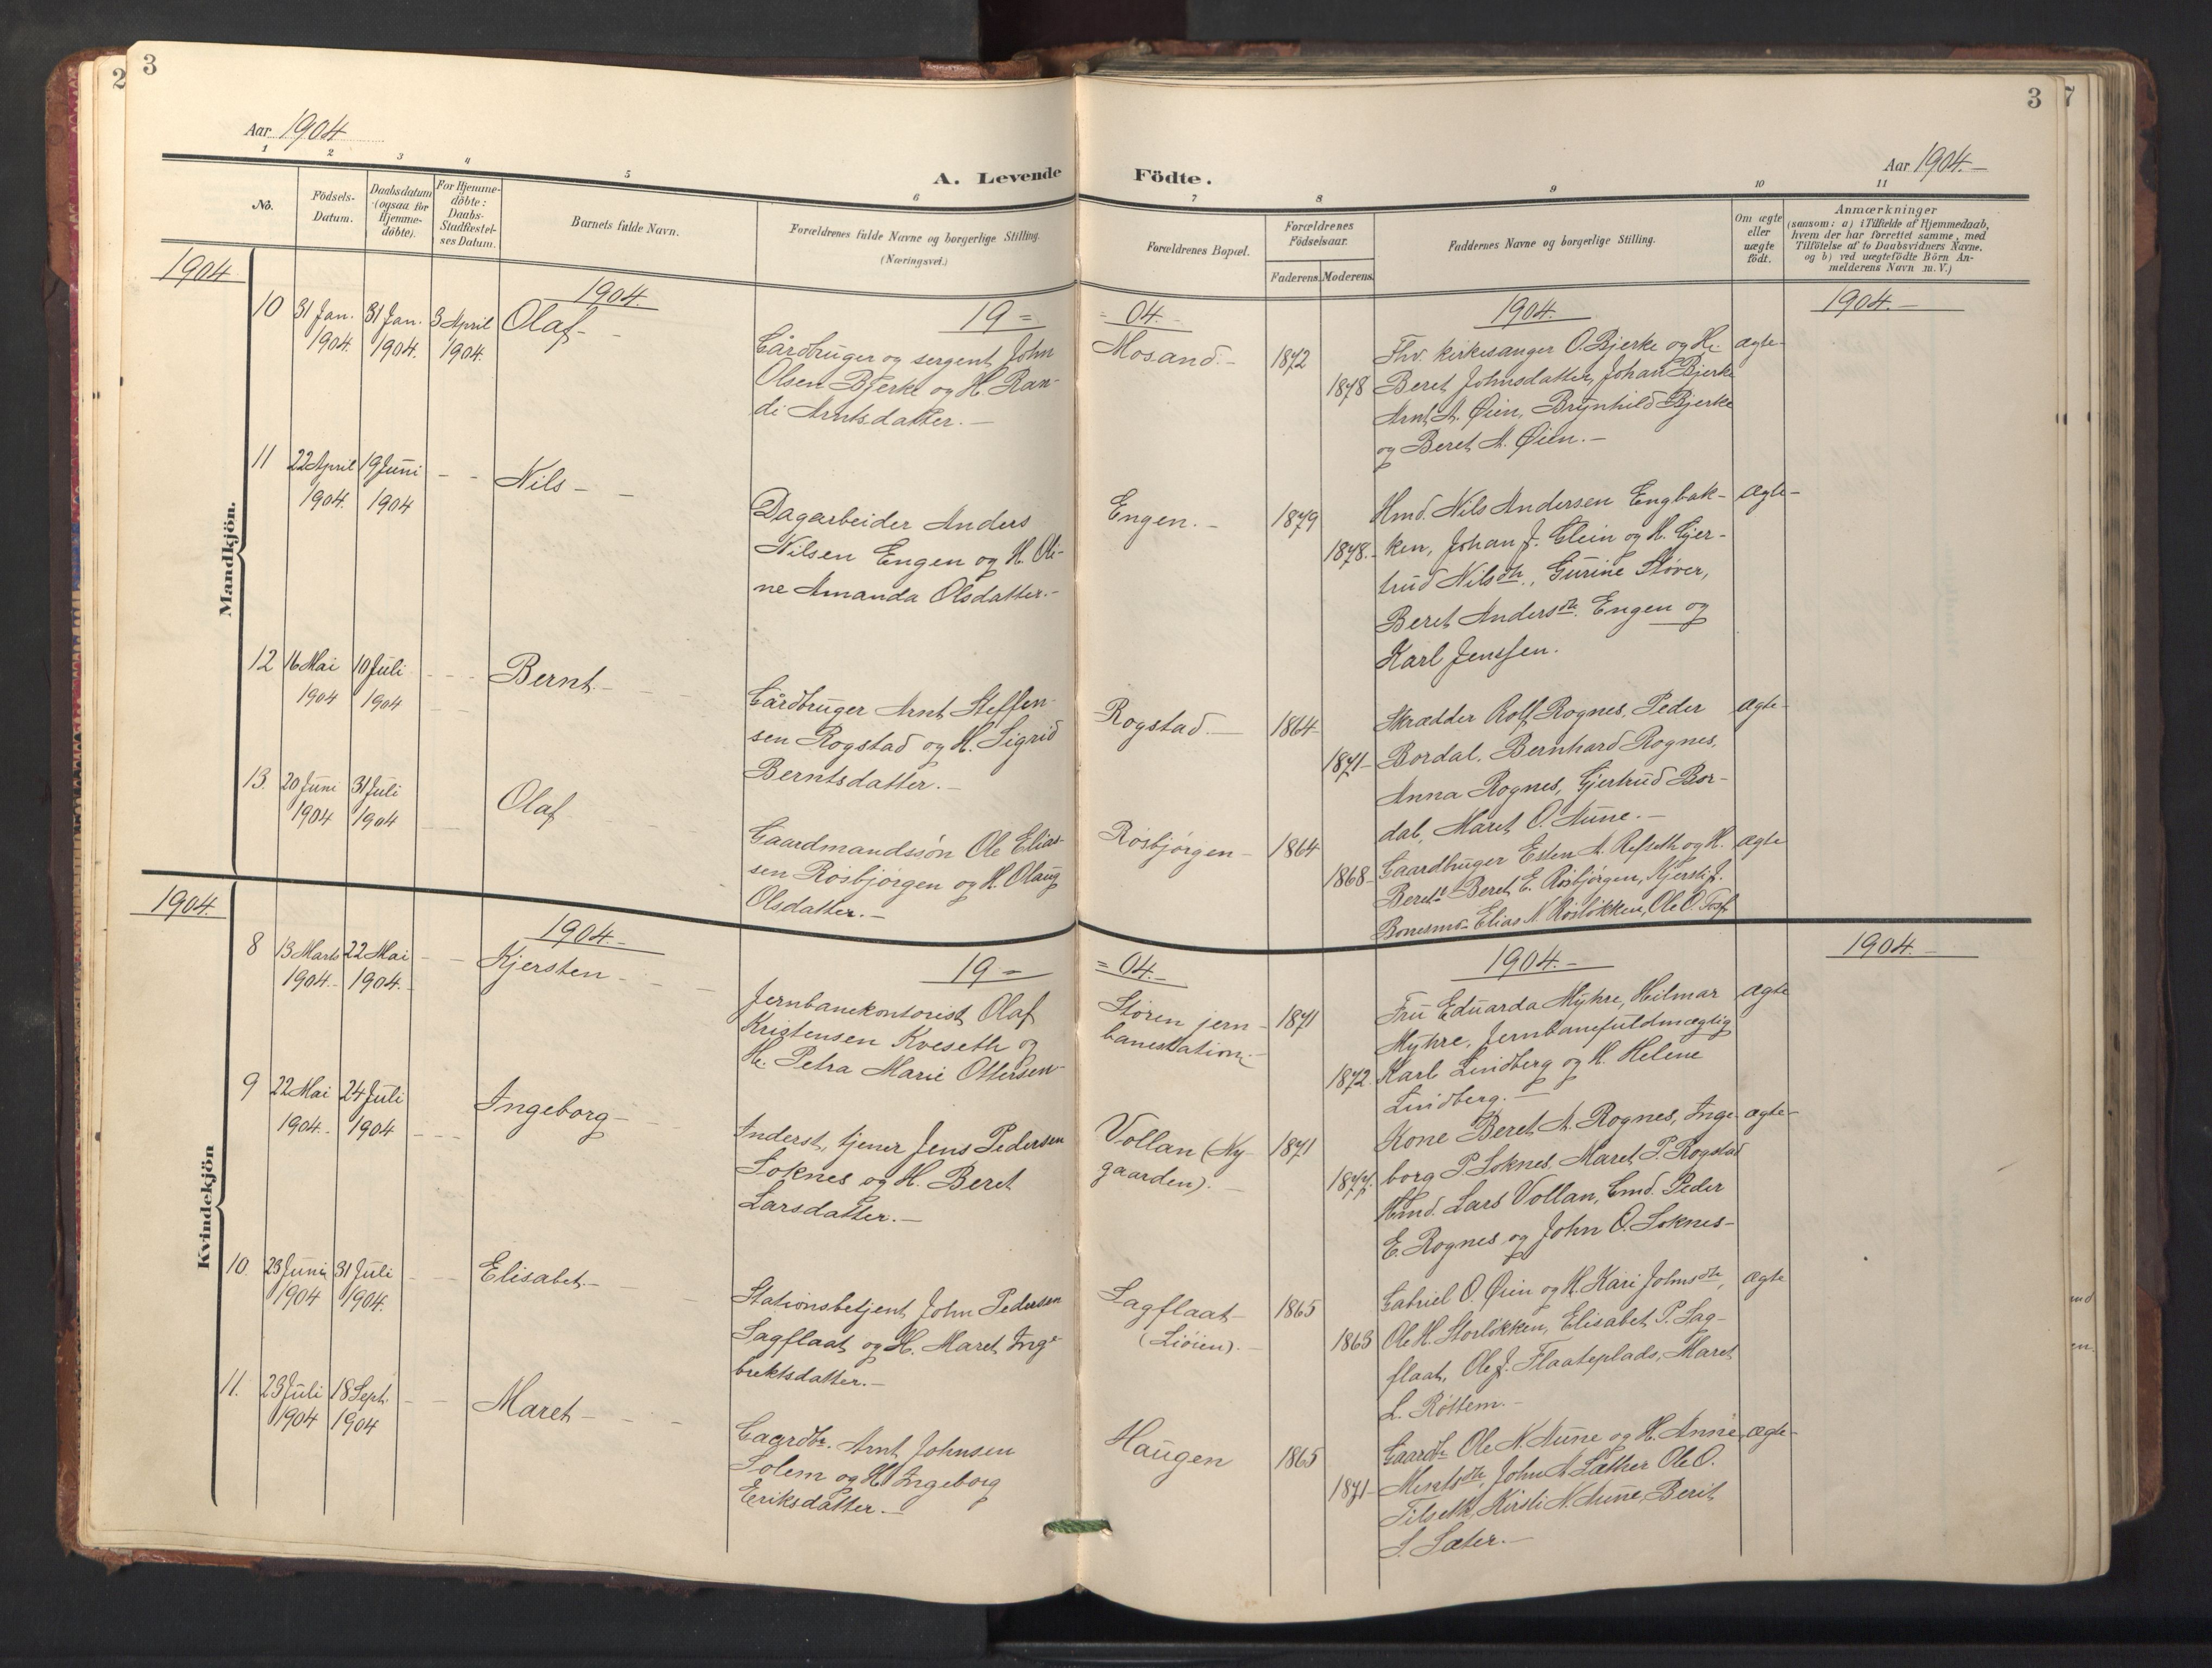 2
3
Aar 1904
A. Levende
1
2
3
4
5
6
No.
Födsels-
Datum.
Daabsdatum
(ogsaa for
Hjemme-
döbte).
For Hjemme-
döbte:
Daabs-
Stadfæstel-
ses Datum.
Barnets fulde Navn.
Forældrenes fulde Navne og borgerlige Stilling.
(Næringsvei.)
1904
1904.
19 =
Mandkjön.
10 31 Jan. 31 Jan. 3 April Olaf - -
1904. 1904. 1904.
Gårdbruger og sergent John
Olsen Bjerke og H. Ran-
di Arntsdatter. -
11 22 April 19 Juni - - Nils - -
1904. 1904
Dagarbeider Anders
Nilsen Engen og H. Oli-
ne Amanda Olsdatter. -
12 16 Mai 10 Juli - - - Bernt. - - -
1904 1904
Gårdbruger Arnt Steffen-
sen Rogstad og H. Sigrid
Berntsdatter. -
13. 20 Juni 31 Juli Olaf
1904 1904
Gaardmandssøn Ole Elias-
sen Rosbjørgen og H. Olaug
Olsdatter. -
1904.
1904. -
19 =
Kvindekjön
8 13 Marts 22 Mai - - Kjersten - - -
1904. - 1904. -
Jernbanekontorist Olaf
Kristensen Kveseth og
H. Petra Marie Ottersen -
9 22 Mai 24 Juli Ingeborg - -
1904. - 1904 - - -
Inderst, tjener Jens Pedersen
Soknes og H. Beret
Larsdatter. -
10. 23 Juni 31 Juli - - Elisabet. - -
1904 1904.
Stationsbetjent John Pedersen
Sagflaat og H. Maret Inge-
briktsdatter. -
11. 23 Juli 18 Sept. - - Maret - - -
1904 1904
Gaardbr. Arnt Johnsen
Solem og H. Ingeborg
Eriksdatter. -
3
7
Aar 1904. -
Födte.
7
8
9
10
11
Forældrenes Bopæl.
Forældrenes
Födselsaar.
Faderens. Moderens.
Faddernes Navne og borgerlige Stilling.
Om ægte
eller
uægte
födt.
Anmærkninger
(saasom: a) i Tilfælde af Hjemmedaab,
hvem der har forrettet samme, med
Tilföielse af to Daabsvidners Navne,
og b) ved uægtefödte Börn An-
melderens Navn m. V.)
= 04. -
1904.
1904. -
Mosand. - 1872 Fhv. kirkesanger O. Bjerke og H. ægte -
1878 Beret Johnsdatter, Johan Bjerke
Arnt A. Øien, Brynhild Bjerke
og Beret A. Øien. -
Engen. - 1879 Hmd. Nils Andersen Engbak- ægte -
1878. - ken, Johan J. Clein og H. Gjer-
trud Nilsdtr., Gurine Støver,
Beret Andersdtr. Engen og
Karl Jenssen.
Rogstad. - 1864 Skrædder Rolf Rognes, Peder ægte -
1871 - Bordal, Bernhard Rognes,
Anna Rognes, Gjertrud Bor-
dal, Maret O. Aune. -
Rosbjørgen - 1864 Gaardbruger Esten A. Refseth og H. ægte
1868 - Beret Beret E. Rosbjørgen, Kjersti J.
Bonesmo Elias N. Rosløkken, Ole O.
= 04. -
1904. -
1904. -
Støren jern- 1871 Fru Eduarda Myhre, Hilmar ægte
banestation. - Myhre, Jernbanefuldmægtig
1872. Karl Lindberg og H. Helene
Lindberg. -
Vollan (Ny- 1871 Kone Beret A. Rognes, Inge- ægte -
gaarden). - 1877. borg P. Soknes, Maret P. Rogstad
Hmd. Lars Vollan, Gmd. Peder
E. Rognes og John O. Soknes -
Sagflaat - 1865 Gabriel O. Øien og H. Kari Johnsdtr, ægte
(Liøien). - 1863 Ole H. Storløkken, Elisabet P. Sag-
flaat, Ole J. Flaateplads, Maret
L. Røttem. -
Haugen 1865 Gaardbr. Ole N. Aune og H. Anne ægte -
1871 - John A. Sæther Ole O.
Tilseth, Kirsti N. Aune, Berit
S. Sæter. -